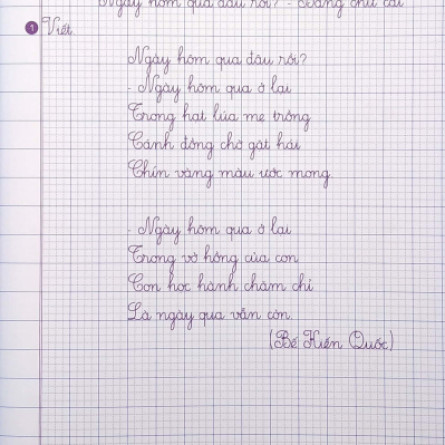 Ngày hôm qua đâu rồi? - Dạng chữ cái
1 Viết
Ngày hôm qua đâu rồi?
- Ngày hôm qua ở lại
Trong hạt lúa mẹ trồng
Cánh đồng chờ gặt hái
Chín vàng màu ước mong.
- Ngày hôm qua ở lại
Trong vở hồng của con
Con học hành chăm chỉ
Là ngày qua vẫn còn.
(Bế Kiến Quốc)